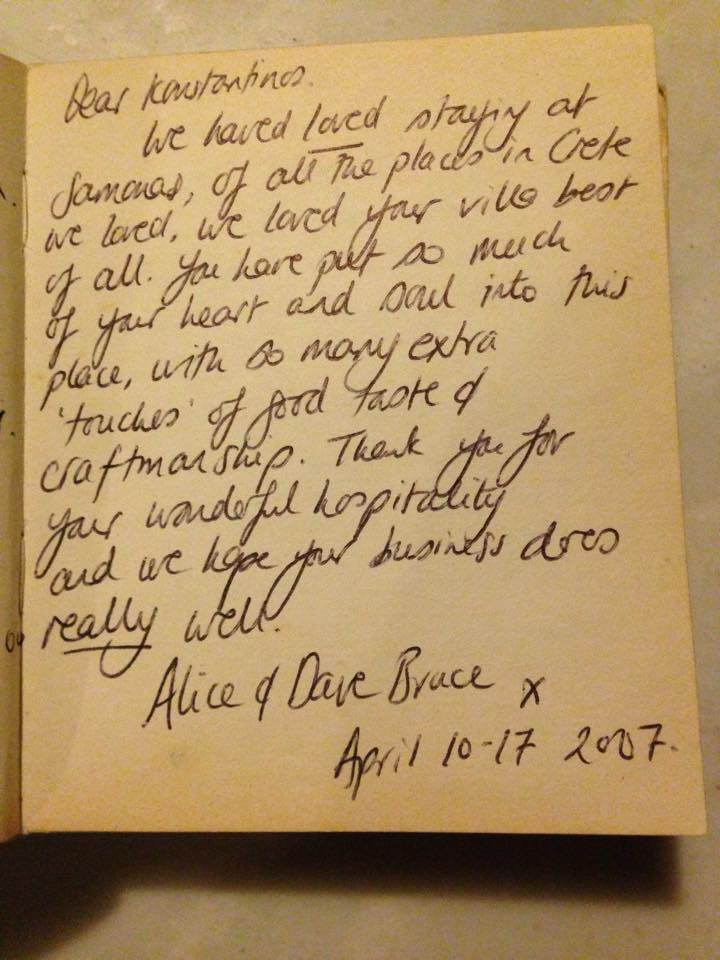 Dear Konstantinos.
We haved loved staying at
Samonas, of all the places in Crete
we loved, we loved your villa best
of all. You have put so much
of your heart and soul into this
place, with so many extra
'touches' of good taste &
craftmanship. Thank you for
your wonderful hospitality
and we hope your business does
really well.
Alice & Dave Bruce x
April 10-17 2007.